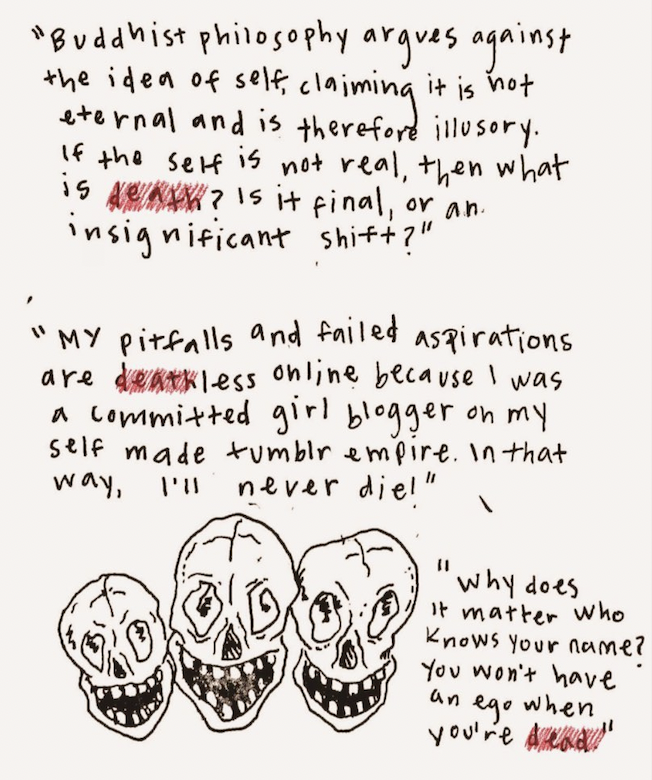 "Buddhist philosophy argues against
the idea of self, claiming it is not
eternal and is therefore illusory.
If the self is not real, then what
is death? Is it final, or an
insignificant shift?"
"My pitfalls and failed aspirations
are deathless online because I was
a committed girl blogger on my
self made tumblr empire. In that
way, I'll never die!"
"Why does
it matter who
knows your name?
You won't have
an ego when
you're dead."